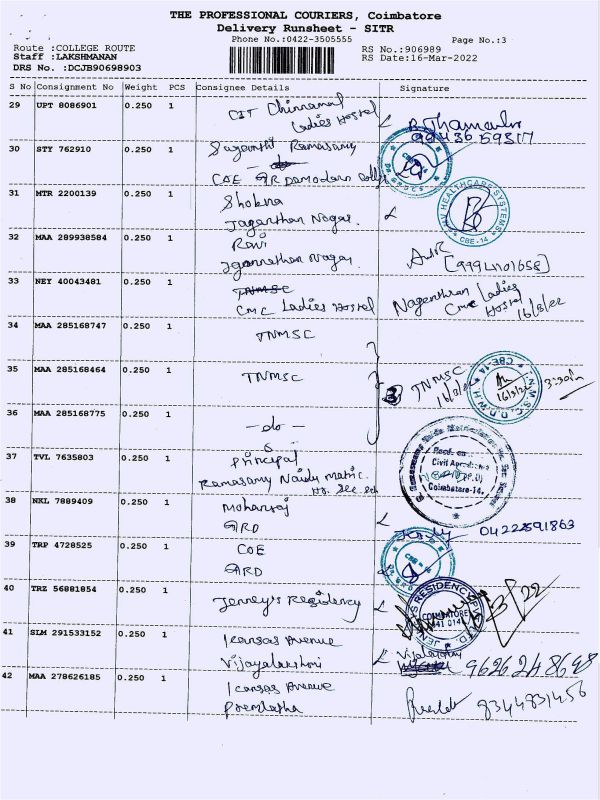 THE PROFESSIONAL COURIERS, Coimbatore
Delivery Runsheet - SITR
Phone No.:0422-3505555
Page No.:3
Route :COLLEGE ROUTE
RS No.:906989
Staff :LAKSHMANAN
RS Date:16-Mar-2022
DRS No. :DCJB90698903
S No Consignment No Weight PCS Consignee Details Signature
29 UPT 8086901 0.250 1 CIT Chinnamal
Ladies Hostel
30 STY 762910 0.250 1 Ramasamy
CAE GR Damodaran
31 MTR 2200139 0.250 1 Shobana
Jaganthan Nagar.
HEALTHCARE SYSTEMS
CBE-14
32 MAA 289938584 0.250 1 Ravi
Jgannathan Nagar.
[9994101658]
33 NEY 40043481 0.250 1 TNMSC
CMC Ladies Hostel
Ladies
CMC Hostel
16/3/22
34 MAA 285168747 0.250 1 TNMSC
35 MAA 285168464 0.250 1 TNMSC
3 TNMSC
CBE-14
16/3/22
3:30
36 MAA 285168775 0.250 1 - do -
37 TVL 7635803 0.250 1 Principal
Ramasamy Naidu Matric.
Hr. Sec. Sch
Coimbatore-14.
38 NKL 7889409 0.250 1 Mohanraj
GRD
04222591863
39 TRP 4728525 0.250 1 COE
GRD
40 TRZ 56881854 0.250 1 Jenney's Residency
COIMBATORE
641 014
41 SLM 291533152 0.250 1 Kansas Avenue
Vijayalakshmi
9626248698
42 MAA 278626185 0.250 1 Kansas Avenue
Premlatha
8344831456